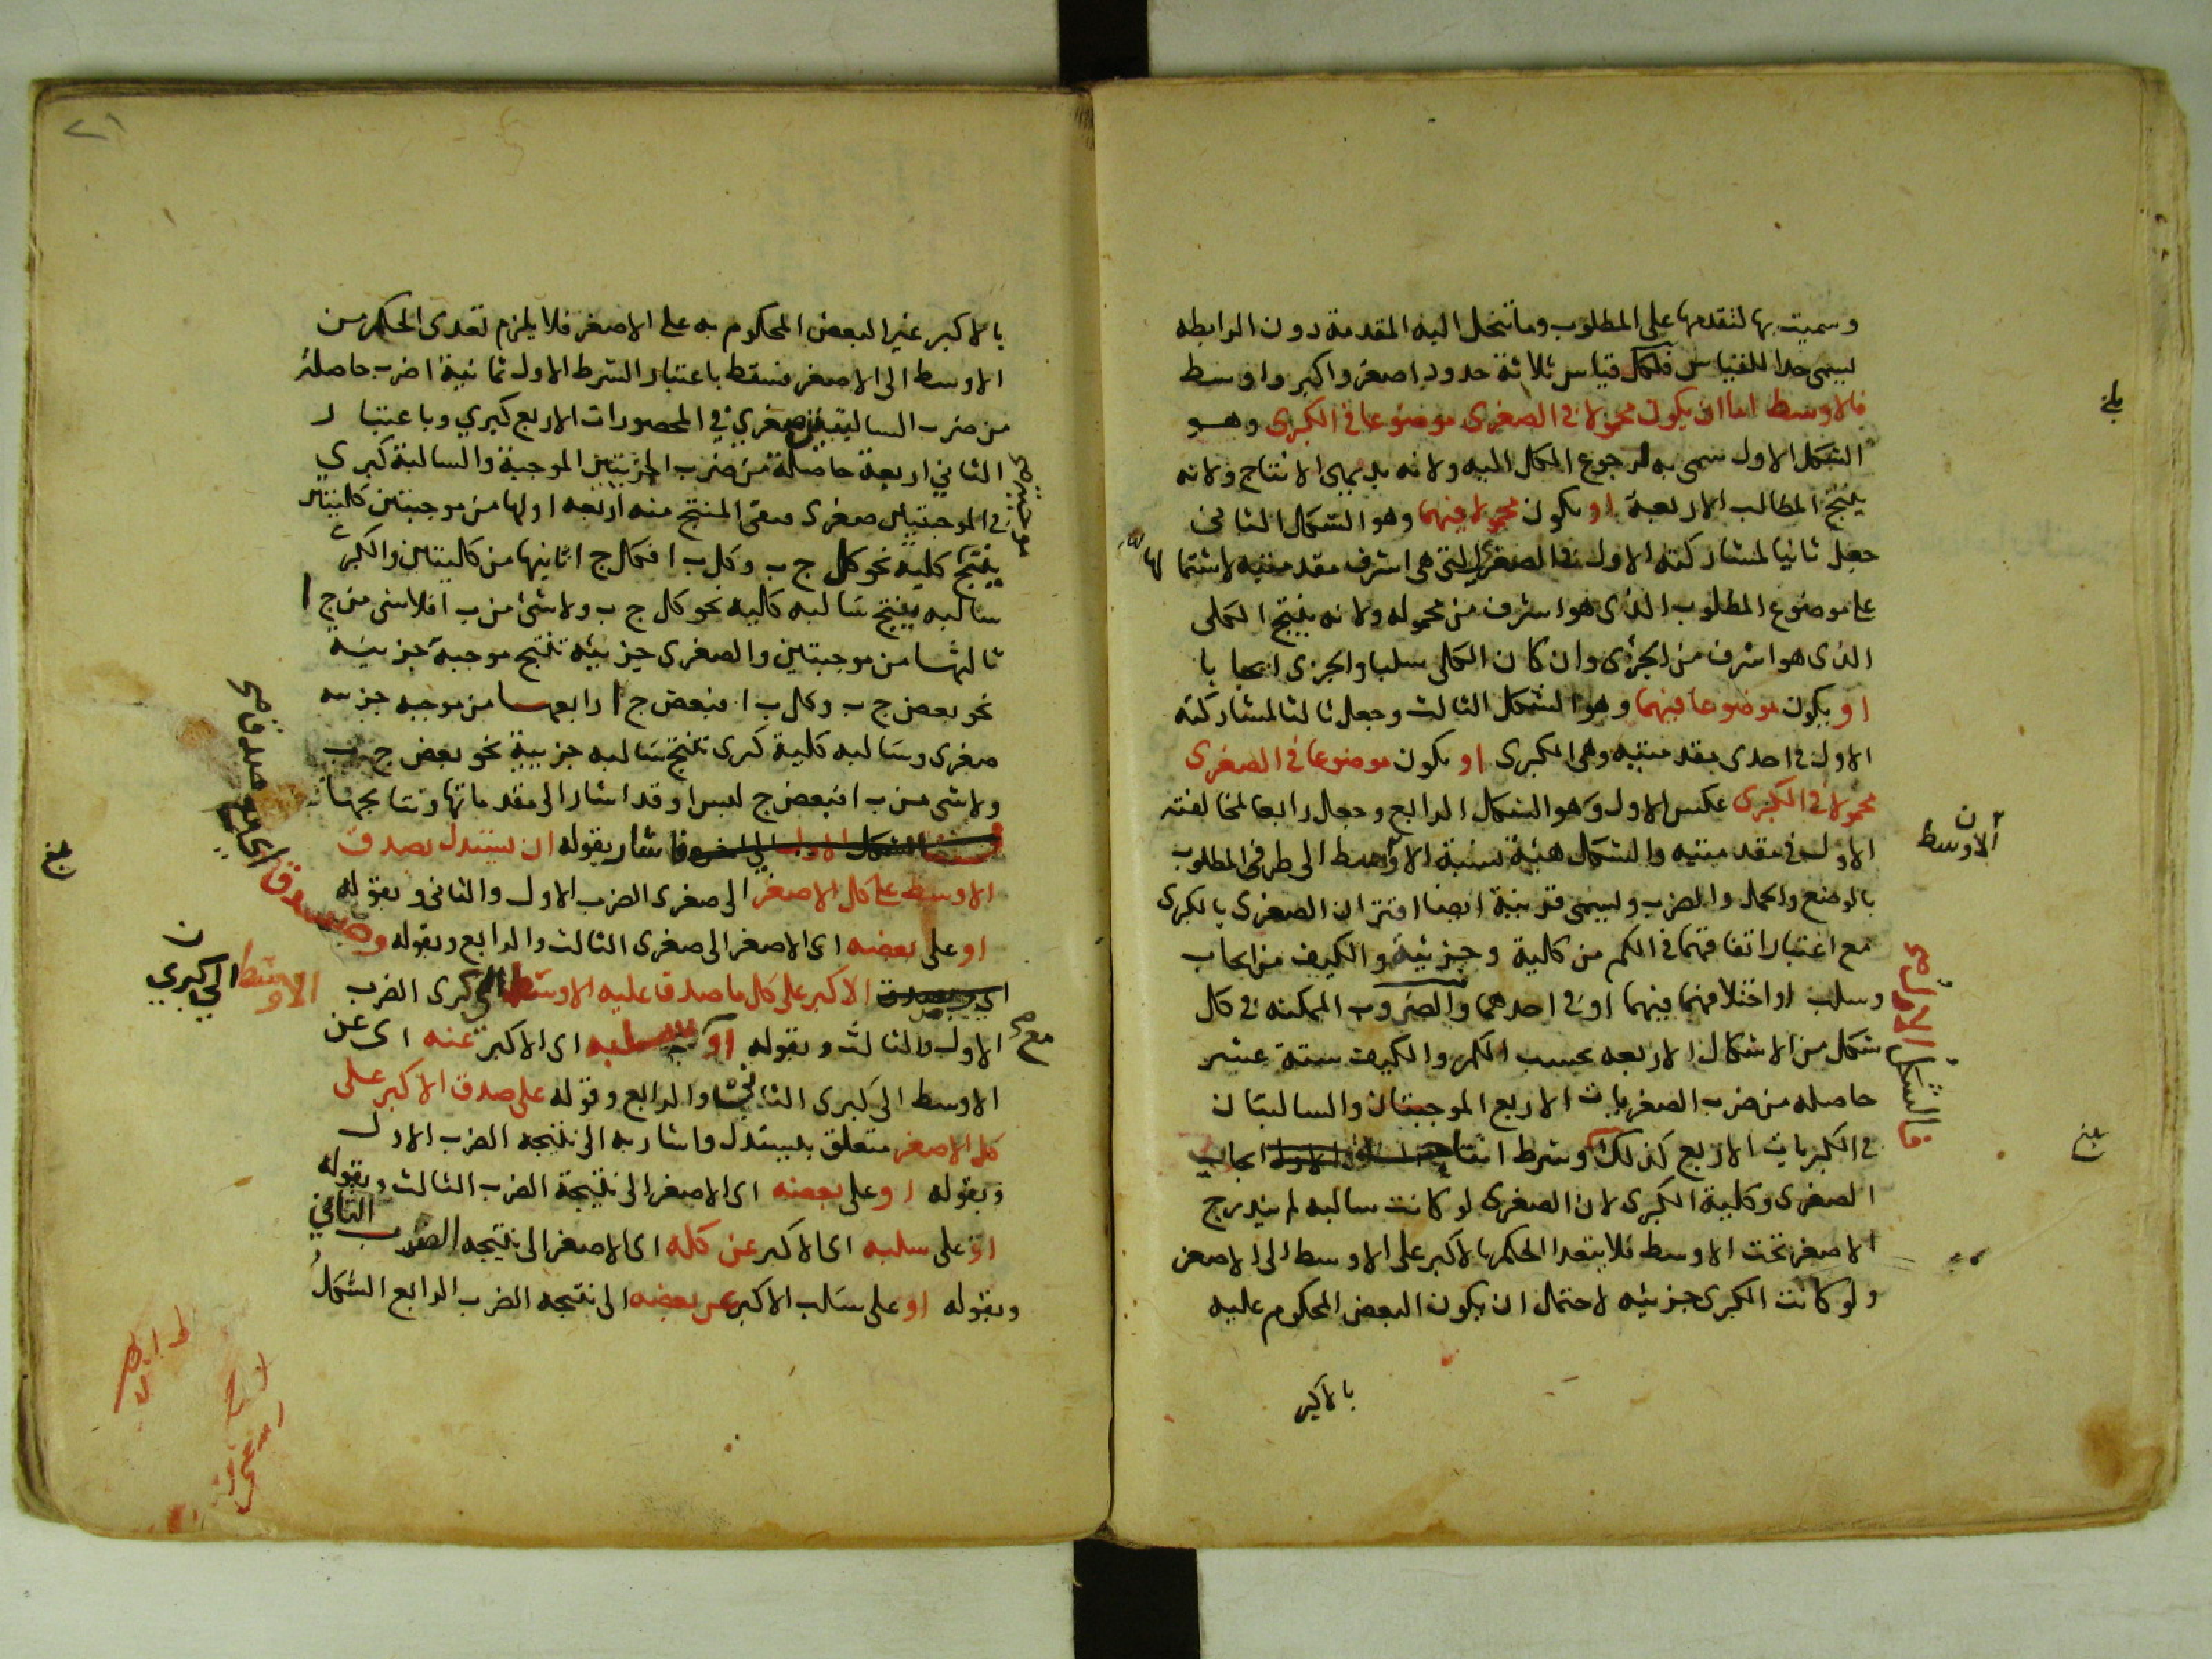 وسميت بها لتقدمها على المطلوب وما تنحل اليه المقدمة دون الرابطه
يسمى حدا للقياس فلكل قياس ثلاثة حدود اصغر واكبر واوسط
فالاوسط اما ان يكون محمولا في الصغرى موضوعا في الكبرى وهو
الشكل الاول سمى به لرجوع الكل اليه ولانه بديهى الانتاج ولانه
ينتج المطالب الاربعة او يكون محمولا فيهما وهو الشكل الثانى
جعل ثانيا لمشاركته الاول في الصغرى التى هى اشرف مقدمتيه لاشتمالها
على موضوع المطلوب الذى هو اشرف من محموله ولانه ينتج الكلى
الذى هو اشرف من الجزئى وان كان الكلى سلبا والجزى ايجابا
او يكون موضوعا فيهما وهو الشكل الثالث وجعل ثالثا لمشاركته
الاول في احدى مقدمتيه وهى الكبرى او يكون موضوعا في الصغرى
محمولا في الكبرى عكس الاول وهو الشكل الرابع وجعل رابعا لمخالفته
الاول في مقدمتيه والشكل هيئة نسبة الاوسط الى طرفى المطلوب
الاوسط ن
بالوضع والحمل والضرب ويسمى قرينة ايضا اقتران الصغرى بالكبرى
مع اعتبار اتفاقهما في الكم من كلية وجزئية والكيف من ايجاب
وسلب او اختلافهما فيهما او في احدهما والضروب الممكنه في كل
شكل من الاشكال الاربعه بحسب الكم والكيف ستة عشر
حاصله من ضرب الصغريات الاربع الموجبتان والسالبتان
في الكبريات الاربع كذلك وشرط انتاج الشكل الاول ايجاب
فالشكل الاول
بلغ
الصغرى وكلية الكبرى لان الصغرى لو كانت سالبه لم يندرج
الاصغر تحت الاوسط فلا يتعدا الحكم بالاكبر على الاوسط الى الاصغر
ولو كانت الكبرى جزئيه لاحتمال ان يكون البعض المحكوم عليه
بالاكبر
٢١
بالاكبر غير البعض المحكوم به على الاصغر فلا يلزم تعدى الحكم من
الاوسط الى الاصغر فسقط باعتبار الشرط الاول ثمانية اضرب حاصلة
من ضرب السالبتين صغري في المحصورات الاربع كبري وباعتبار
الثاني اربعة حاصلة من ضرب الجزيتين الموجبة والسالبة كبري
في الموجبتين صغرى فبقى المنتج منه اربعه اولها من موجبتين كليتين
ينتج كلية نحو كل ج ب وكل ب ا فكل ج ا ثانيها من كليتين والكبرى
سالبه ينتج سالبه كليه نحو كل ج ب ولا شئ من ب ا فلا شى من ج ا
ثالثها من موجبتين والصغرى جزيئه تنتج موجبة جزيية
نحو بعض ج ب وكل ب ا فبعض ج ا رابعها من موجبه جزييه
صغرى وسالبه كلية كبرى تنتج سالبه جزيية نحو بعض ج ب
ولا شى من ب ا فبعض ج ليس ا وقد اشار الى مقدماتها ونتايجها
فاشار بقوله ان يستدل بصدق
الاوسط على كل الاصغر الى صغرى الضرب الاول والثانى وبقوله
او على بعضه اى الاصغر الى صغرى الثالث والرابع وبقوله وصدق
الاكبر على كل ما صدق عليه الاوسط الى كبرى الضرب
الاوسط الي كبري ن
الاول والثالث وبقوله او سلبه اى الاكبر عنه اى عن
الاوسط الى كبرى الثانى والرابع وقوله على صدق الاكبر على
كل الاصغر متعلق بيستدل واشار به الى نتيجه الضرب الاول
وبقوله او على بعضه اى الاصغر الى نتيجة الضرب الثالث وبقوله
او على سلبه اى الاكبر عن كله اى الاصغر الى نتيجه الضرب الثاني
وبقوله او على سلب الاكبر عن بعضه الى نتيجه الضرب الرابع الشكل